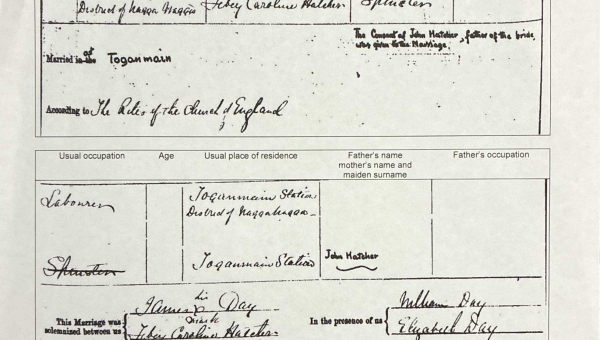 District of Wagga Wagga Febey Caroline Hatcher Spinster
The Consent of John Hatcher, father of the bride,
was given to the Marriage.
Married in the at Toganmain
According to The Rites of the Church of England
Usual occupation Age Usual place of residence Father's name Father's occupation
mother's name and
maiden surname
Labourer Toganmain Station
District of Wagga Wagga
Spinster Toganmain Station John Hatcher
James his Day William Day
This Marriage was mark In the presence of us
solemnized between us Febey Caroline Hatcher Elizabeth Day